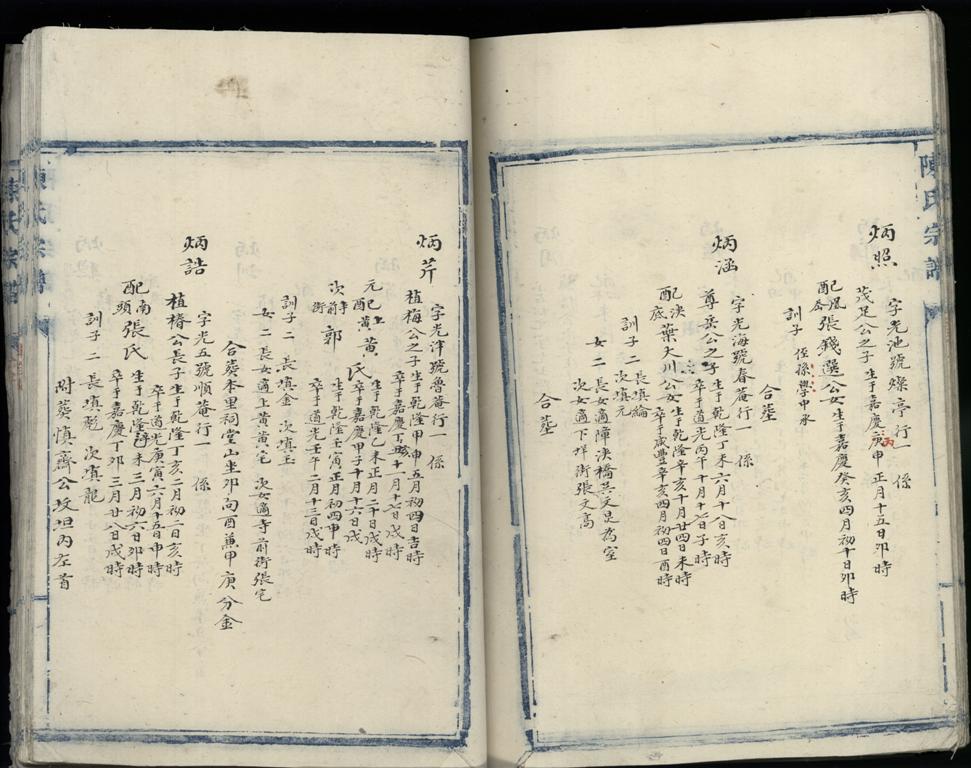 陳氏宗譜
炳照
字光池號燦亭行一 係
茂足公之子生于嘉慶庚申正月十五日卯時
丙
配 張錢選公女生于嘉慶癸亥四月初十日卯時
訓子 侄孫學申承
合塟
炳涵
字光海號春菴行一 係
尊岳公之子生于乾隆丁未六月十八日亥時
卒于道光丙午十月十七日子時
配決底葉大川公女生于乾隆辛亥十月廿四日未時
卒于咸豐辛亥四月初四日酉時
訓子二 長填綸
次填元
女二 長女適障決橋 文昆為室
次女適下垟街張文高
合塟
炳芹
字光津號魯菴行一 係
植梅公之子生于乾隆甲申五月初四日吉時
卒于嘉慶丁 十月十七日戌時
元配上黃黃氏生于乾隆乙未正月二十日戌時
卒于嘉慶甲子十月十六日戌
次 寺前街 郭 生于乾隆壬寅正月初四申時
卒于道光壬午二月十三日戌時
訓子二 長填金 次填玉
女二 長女適上黃黃宅 次女適寺前街張宅
合葬本里祠堂山坐卯向酉兼甲庚分金
炳誥
字光五號順菴行一 係
植椿公長子生于乾隆丁亥二月初二日亥時
卒于道光庚寅六月十五日申時
配南頭張氏生于乾隆 未三月初六日卯時
卒于嘉慶丁卯三月廿八日戌時
訓子二 長填乾 次填龍
附葬慎齊公坟坦內左首
陳氏宗譜